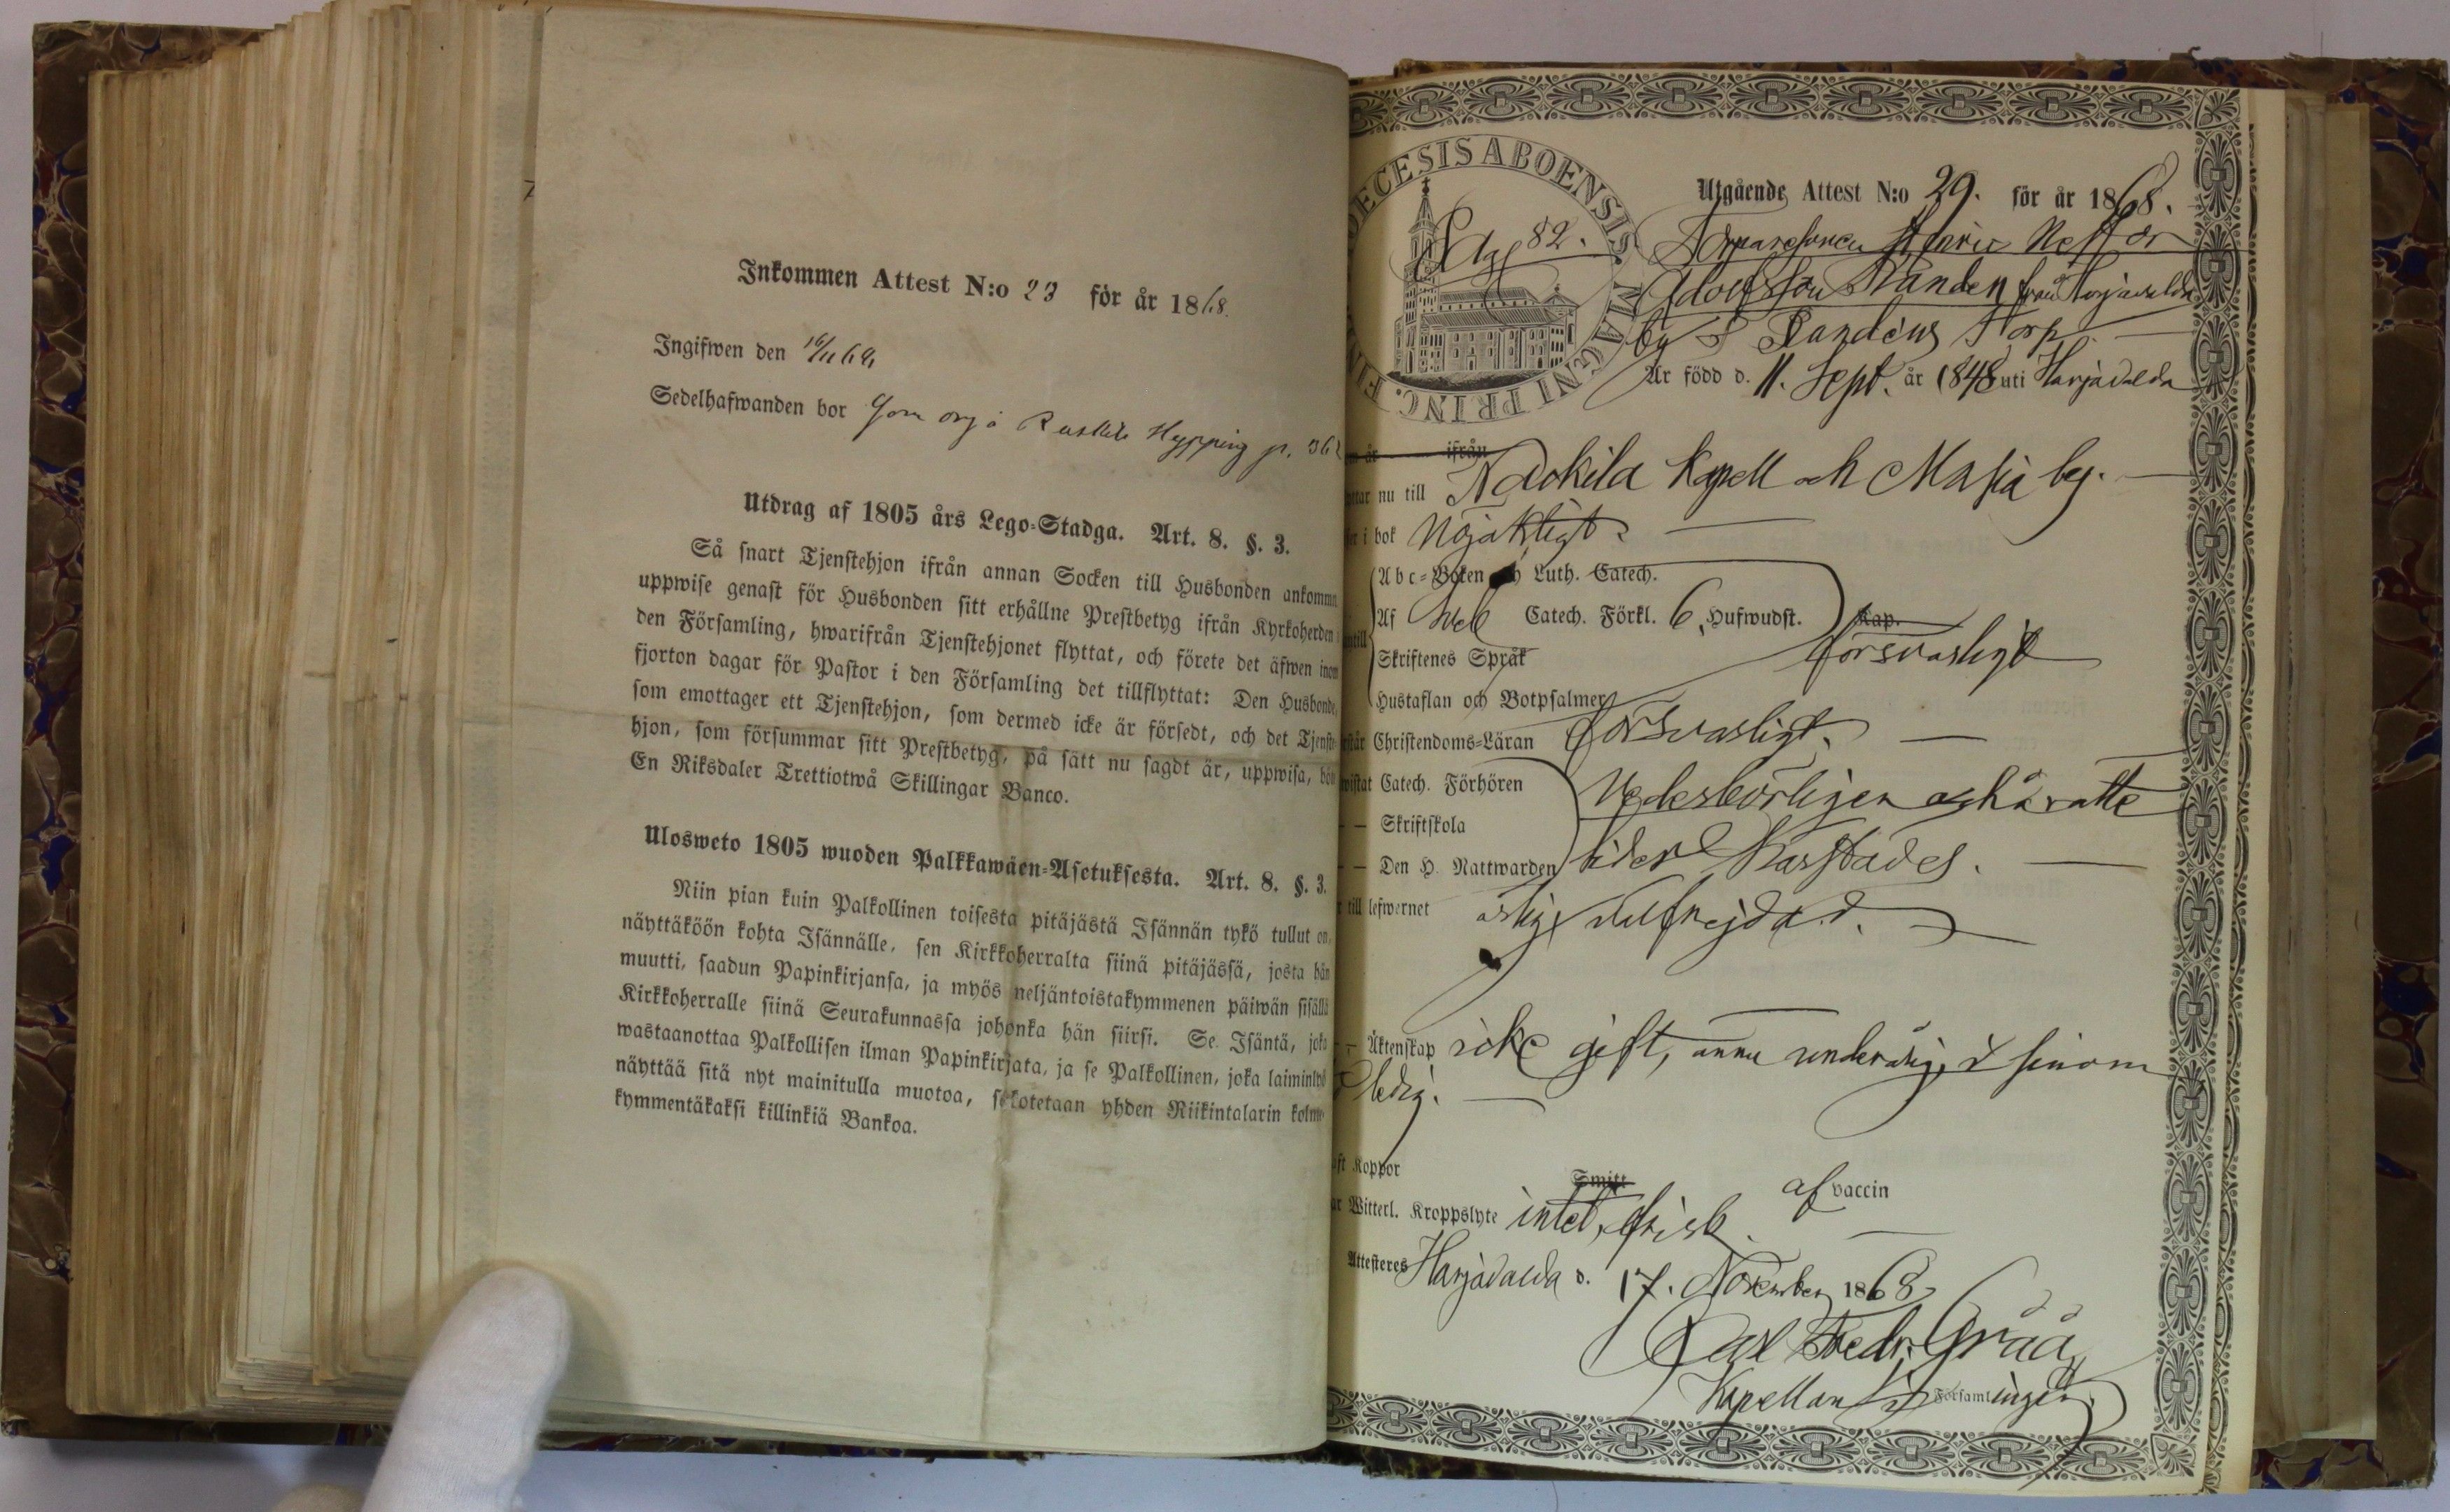 Inkommen Attest N:o 23 för år 1868.
Ingifwen den 16/11 68
Sedelhafwanden bor
Utdrag af 1805 års Lego-Stadga. Art. 8. §. 3.
Så snart Tjenstehjon ifrån annan Socken till Husbonden ankommit
uppwise genast för Husbonden sitt erhållne Prestbetyg ifrån Kyrkoherden
den Församling, hwarifrån Tjenstehjonet flyttat, och förete det äfwen inom
fjorton dagar för Pastor i den Församling det tillflyttat: Den Husbonde,
som emottager ett Tjenstehjon, som dermed icke är försedt, och det Tjenste-
hjon, som försummar sitt Prestbetyg, på sätt nu sagdt är, uppwisa, böt
En Riksdaler Trettiotwå Skillingar Banco.
Ulosweto 1805 wuoden Palkkawäen-Asetuksesta. Art. 8. §. 3.
Niin pian kuin Palkollinen toisesta pitäjästä Isännän tykö tullut on,
näyttäköön kohta Isännälle, sen Kirkkoherralta siinä pitäjässä, josta hän
muutti, saadun Papinkirjansa, ja myös neljäntoistakymmenen päiwän sisällä
Kirkkoherralle siinä Seurakunnassa johonka hän siirsi. Se Isäntä, joka
wastaanottaa Palkollisen ilman Papinkirjata, ja se Palkollinen, joka laiminlyö
näyttää sitä nyt mainitulla muotoa, sakotetaan yhden Riikintalarin kolme-
kymmentäkaksi killinkiä Bankoa.
DIOECESIS ABOENSIS MAGNI PRINC. FIN
Pag 82.
Utgående Attest N:o 29. för år 1868.
Torparesonen Henric Nestor
Adolfsson Randen från Harjavalda
by Torp
Är född d. 11. Sept. år 1848 uti Harjavalda
år ifrån
ttar nu till Nackila Kapell och Masia by.
i bok Nöjaktigt.
Abc-Boken och Luth. Catech.
Af Sveb Catech. Förkl. 6. Hufwudst. Kap.
Skriftenes Språk försvarligt
Hustaflan och Botpsalmer
står Christendoms-Läran Försvarligt.
wistat Catech. Förhören Vederbörligen och å rätta
— Skriftskola
— Den H. Nattwarden tider
till lefwernet ärlig välfrejdad.
— Äktenskap icke gift, ännu underårig, &
ledig.
aft Koppor Smitt af vaccin
ar Witterl. Kroppslyte intet, frisk.
Attesteres Harjavalda d. 17. November 1868
Carl Fredr. Gråå
Kapellan i Församlingen.